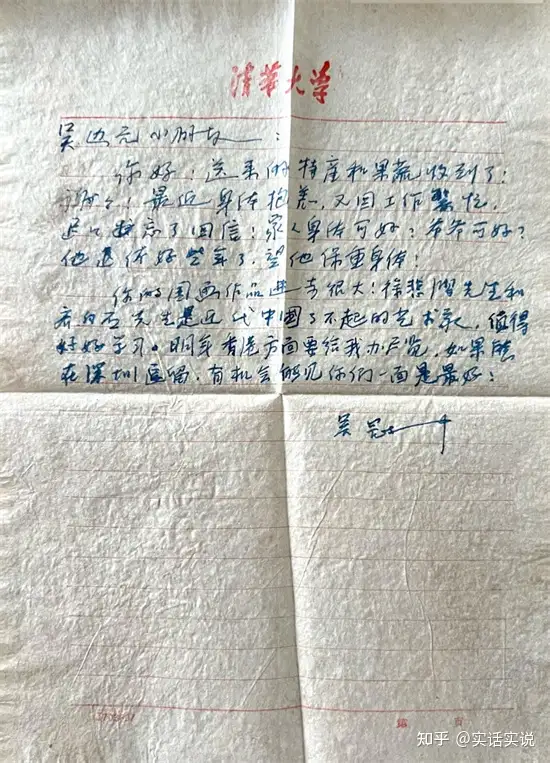 清華大学
吴边亮小朋友：
你好！送来的特産和果蔬收到了！
谢谢！最近身体抱恙，又因工作繁忙，
迟々回信！家人身体可好？爷爷可好？
他退休好些年了，望他保重身体！
你的国画作品进步很大！徐悲鸿先生和
齐白石先生是近代中國了不起的艺术家，值得
好好学习。明年香港方面要给我办户览，如果能
在深圳逗留，有机会能见你们一面是最好！
吴冠中
第 頁
知乎 @实话实说